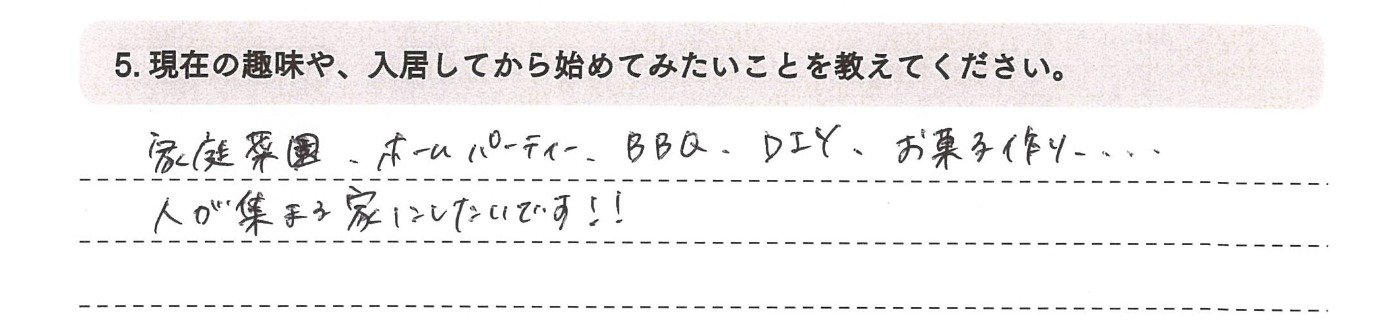 5. 現在の趣味や、入居してから始めてみたいことを教えてください。
家庭菜園、ホームパーティー、BBQ、DIY、お菓子作り....
人が集まる家にしたいです!!